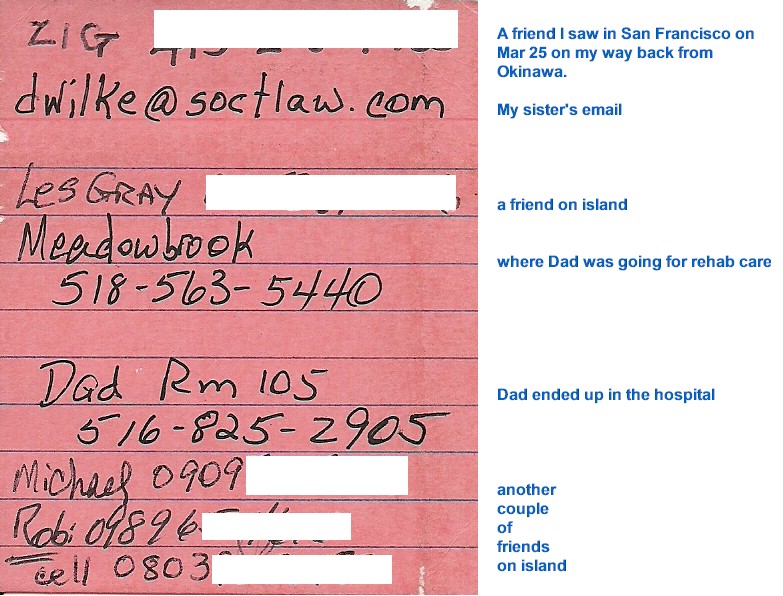 ZIG
dwilke@soctlaw.com
Les GRAY
Meadowbrook
518-563-5440
Dad Rm 105
516-825-2905
Michael 0909
Robi 09896
cell 0803
A friend I saw in San Francisco on
Mar 25 on my way back from
Okinawa.
My sister's email
a friend on island
where Dad was going for rehab care
Dad ended up in the hospital
another
couple
of
friends
on island